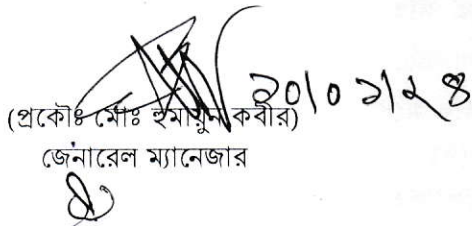 ২০/০১/২৪
(প্রকৌঃ মোঃ হুমায়ুন কবীর)
জেনারেল ম্যানেজার